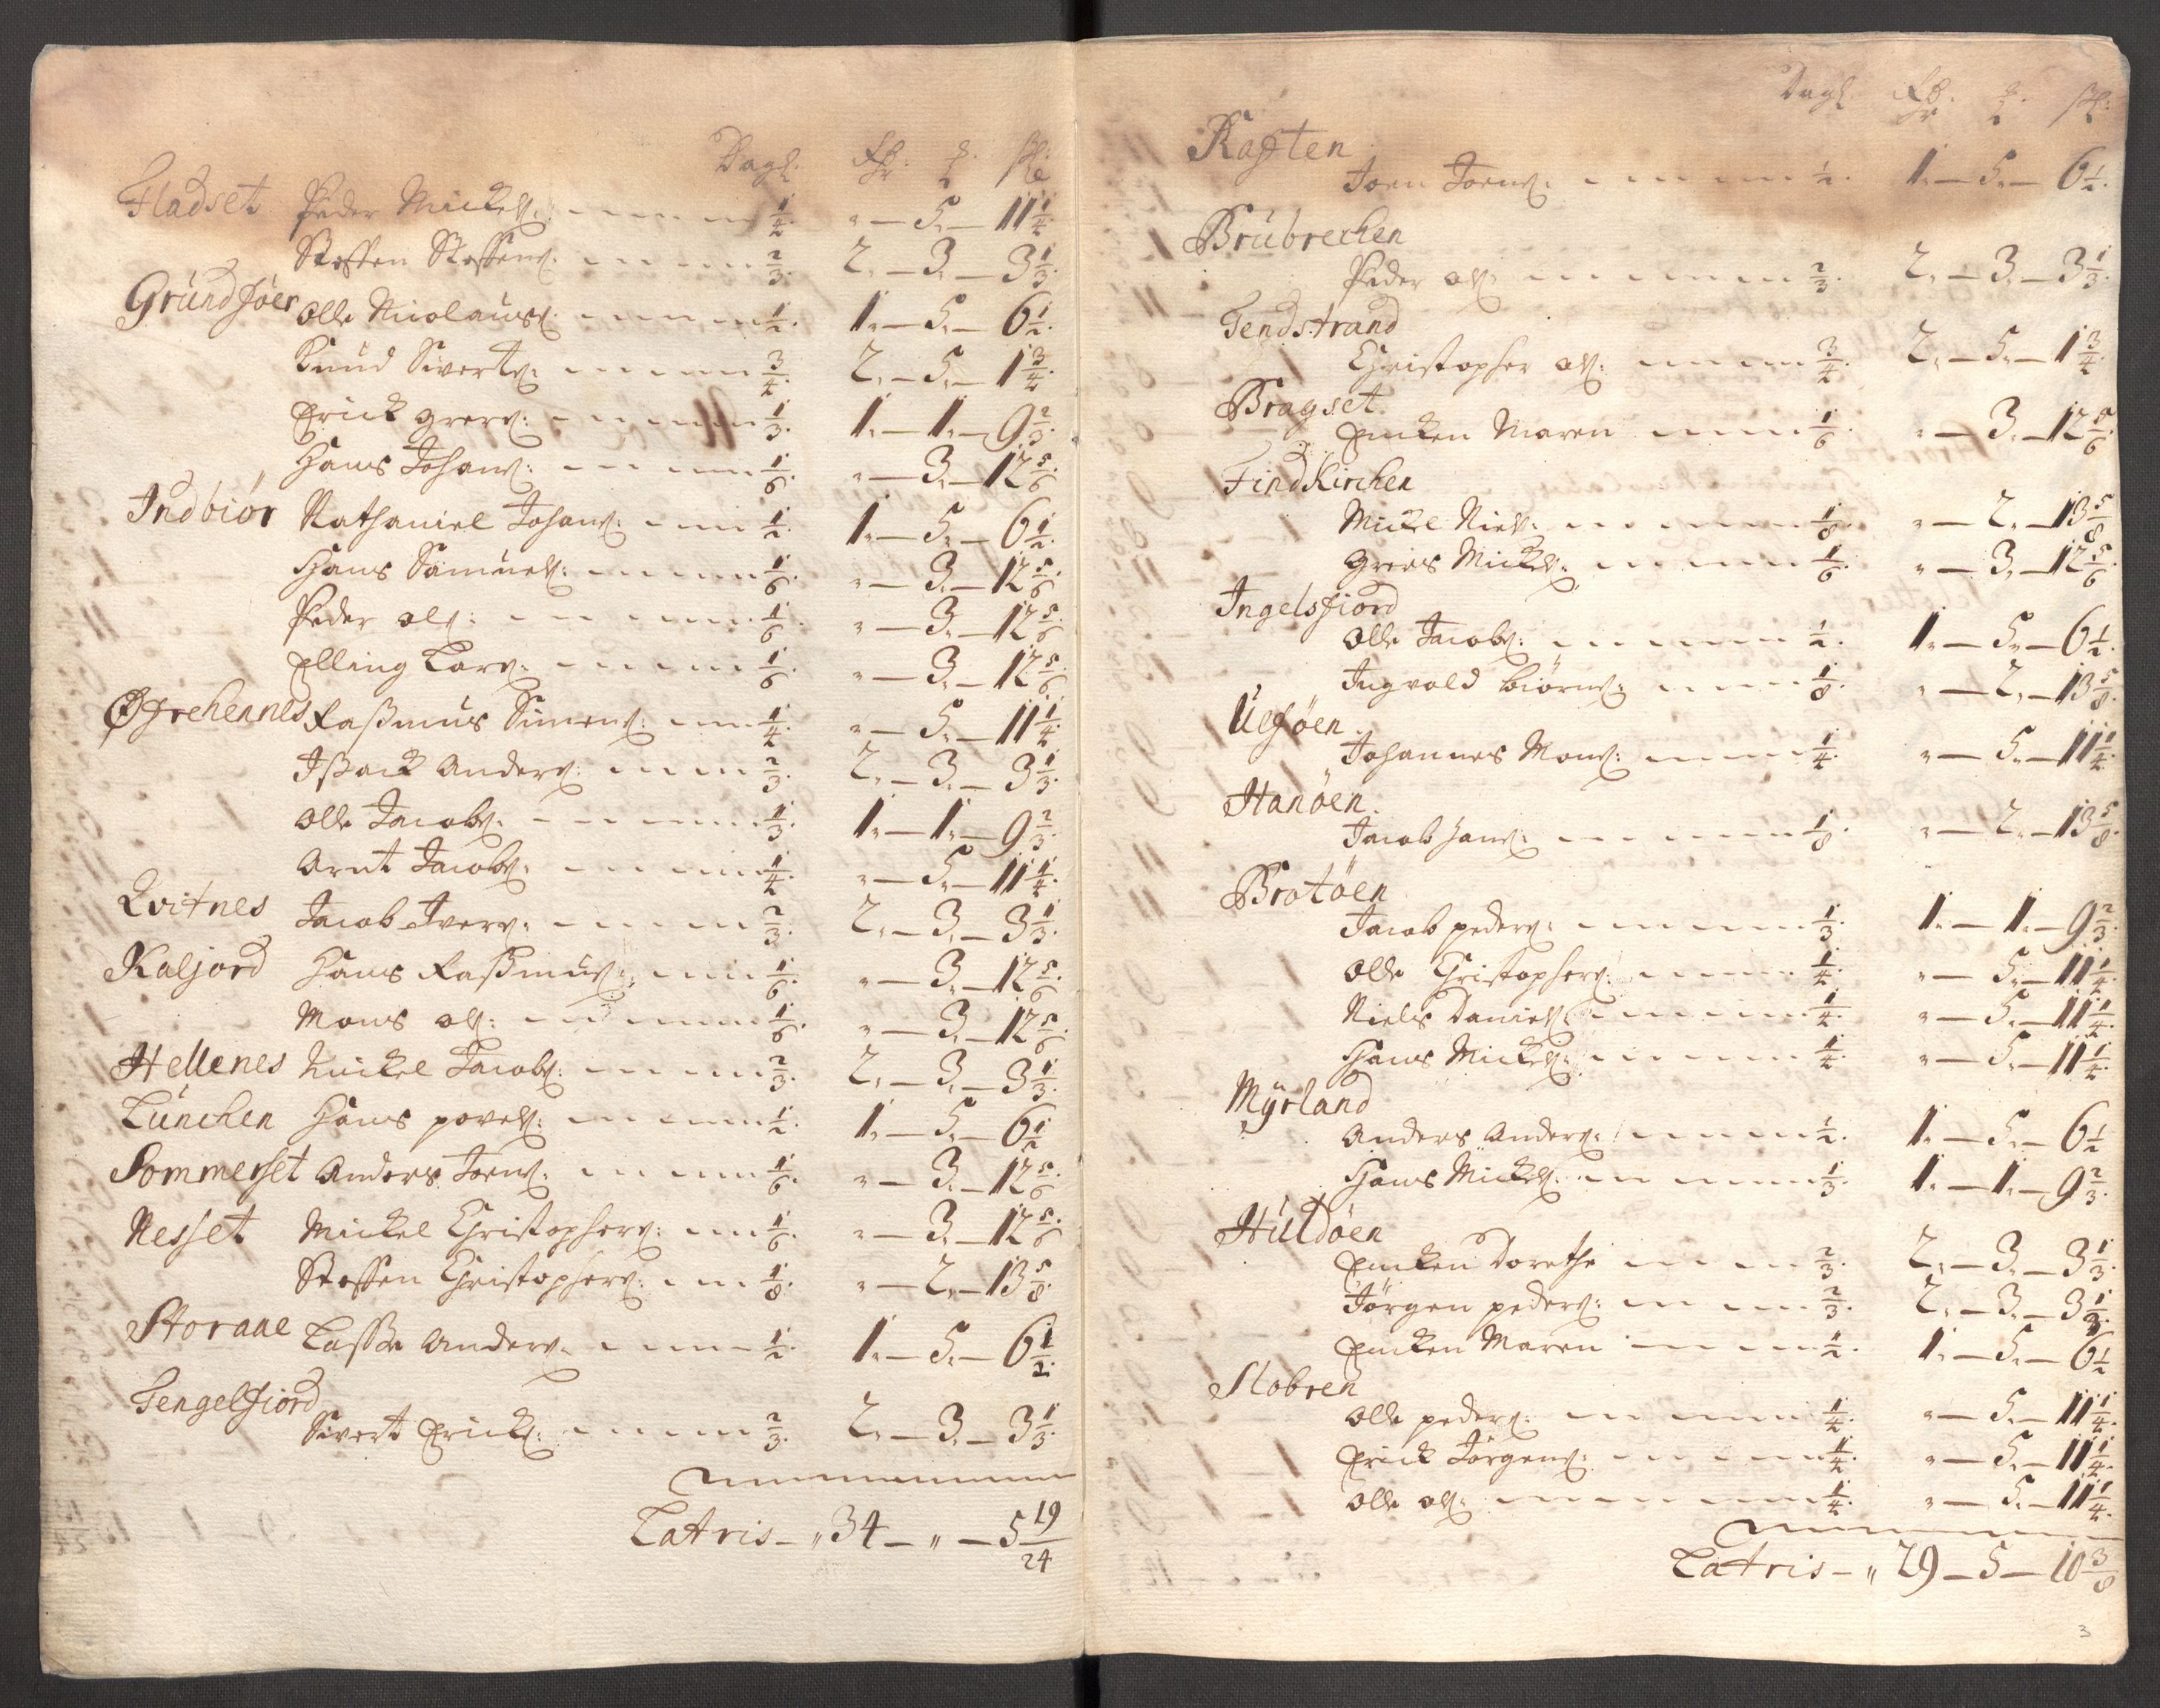 Dagl: Rdr: ℔ ſk:
Fladset Peder Mickels: 1/4. " — 5. — 11 1/4.
Steffen Steffens: 2/3. 2. — 3. — 3 1/3.
Grundföer Olle Nicolaus: 1/2. 1. — 5. — 6 1/2.
Knud Siverts: 3/4. 2. — 5. — 1 3/4.
Erick Grers: 1/3. 1. — 1. — 9 2/3.
Hans Johans: 1/6. " — 3. — 12 5/6.
Indbiör Nathaniel Johans: 1/2. 1. — 5. — 6 1/2.
Hans Samuels: 1/6. " — 3. — 12 5/6.
Peder ols: 1/6. " — 3. — 12 5/6.
Elling Lars: 1/6. " — 3. — 12 5/6.
Øgrehennes Raßmus Simens: 1/4. " — 5. — 11 1/4.
Ißack Anders: 2/3. 2. — 3. — 3 1/3.
Olle Jacobs: 1/3. 1. — 1. — 9 2/3.
Arnt Jacobs: 1/4. " — 5. — 11 1/4.
Qvitnes Jacob Ivers: 2/3. 2. — 3. — 3 1/3.
Kaljord Hans Raßmus: 1/6. " — 3. — 12 5/6.
Mons ols: 1/6. " — 3. — 12 5/6.
Hellenes Mickel Jacobs: 2/3. 2. — 3. — 3 1/3.
Lünchen Hans povels: 1/2. 1. — 5. — 6 1/2
Sommerset Anders Joens: 1/6. " — 3. — 12 5/6
Nesset Mickel Christophers: 1/6. " — 3. — 12 5/6.
Steffen Christophers: 1/8. " — 2. — 13 5/8.
Storaae Lasse Anders. 1/2. 1. — 5. — 6 1/2.
Tengelfiord
Sivert Ericks: 2/3. 2. — 3. — 3 1/3.
Latris — " 34 — " — 5 19/24
Dagl. Rdr. ℔ ſk:
Kasten
Joen Joens: 1/2. 1. — 5. — 6 1/2.
Brübrechen
Peder ols: 2/3. 2. — 3. — 3 1/3.
Tendstrand
Christopher ols: 3/4. 2. — 5. — 1 3/4.
Bragset
Encken Maren 1/6. " — 3. — 12 5/6
Findkirchen
Mickel Niels: 1/8. " — 2. — 13 5/8
Greers Mickels: 1/6. " — 3. — 12 5/6.
Ingelsfiord
Olle Jacobs: 1/2. 1. — 5. — 6 1/2.
Ingvold Biörns: 1/8. " — 2. — 13 5/8.
Ulföen
Johannes Mons: 1/4. " — 5. — 11 1/4.
Hanöen.
Jacob Hans: 1/8. " — 2. — 13 5/8.
Brotöen
Jacob peders: 1/3. 1. — 1. — 9 2/3.
Olle Christophers: 1/4. " — 5. — 11 1/4.
Niels Daniels: 1/4. " — 5. — 11 1/4.
Hans Mickels: 1/4. " — 5. — 11 1/4.
Myrland
Anders Anders: 1/2. 1. — 5. — 6 1/2
Hans Mickels: 1/3. 1. — 1. — 9 2/3.
Huldöen
Encken Dorethe 2/3. 2. — 3. — 3 1/3.
Jörgen peders: 2/3. 2. — 3. — 3 1/3.
Encken Maren 1/2. 1. — 5. — 6 1/2
Slobren
Olle peders: 1/4. " — 5. — 11 1/4.
Erick Jörgens: 1/4. " — 5. — 11 1/4.
Olle ols: 1/4. " — 5. — 11 1/4.
Latris — " 29 — 5 — 10 3/8
3